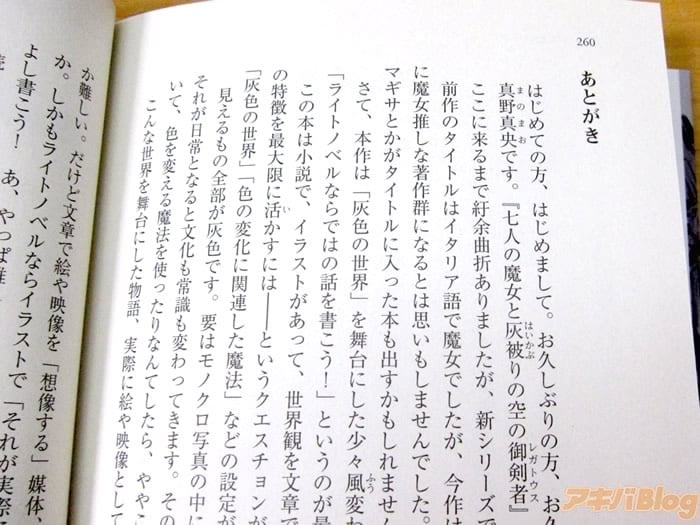 260
あとがき
はじめての方、はじめまして。お久しぶりの方、お久
真野真央です。『七人の魔女と灰被りの空の御剣者』
まのまお
はいかぶ
レガトゥス
ここに来るまで紆余曲折ありましたが、新シリーズで
前作のタイトルはイタリア語で魔女でしたが、今作は
に魔女推しな著作群になるとは思いもしませんでした。
マギサとかがタイトルに入った本も出すかもしれません
さて、本作は「灰色の世界」を舞台にした少々風変わ
ふう
「ライトノベルならではの話を書こう！」というのが最
この本は小説で、イラストがあって、世界観を文章で
の特徴を最大限に活かすには――というクエスチョンが
い
「灰色の世界」「色の変化に関連した魔法」などの設定が
見えるもの全部が灰色です。要はモノクロ写真の中に
それが日常となると文化も常識も変わってきます。その
いて、色を変える魔法を使ったりなんてしたら、ややこ
こんな世界を舞台にした物語、実際に絵や映像として
か難しい。だけど文章で絵や映像を「想像する」媒体、
か。しかもライトノベルならイラストで「それが実際
よし書こう！　あ、やっぱ難
アキバBlog